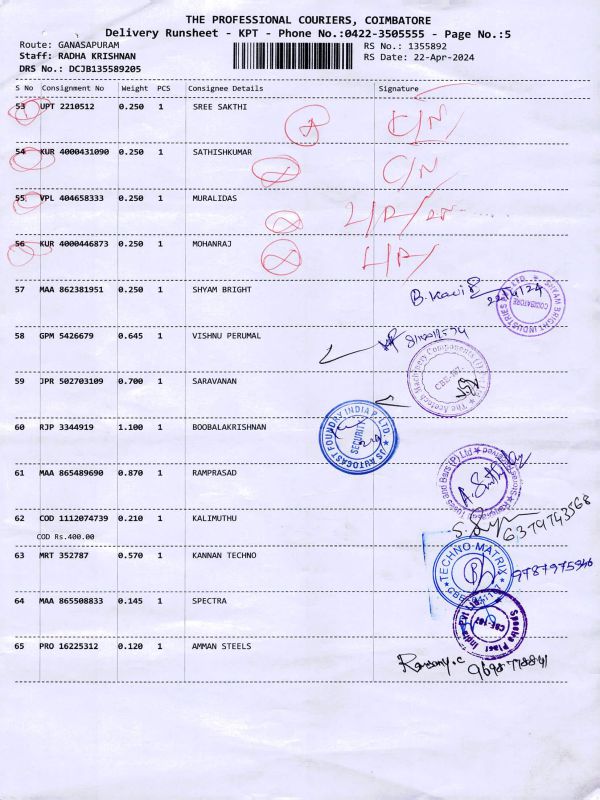 THE PROFESSIONAL COURIERS, COIMBATORE
Delivery Runsheet - KPT - Phone No.:0422-3505555 - Page No.:5
Route: GANASAPURAM RS No.: 1355892
Staff: RADHA KRISHNAN RS Date: 22-Apr-2024
DRS No.: DCJB135589205
S No Consignment No Weight PCS Consignee Details Signature
53 UPT 2210512 0.250 1 SREE SAKTHI C/N
54 KUR 4000431090 0.250 1 SATHISHKUMAR C/N
55 VPL 404658333 0.250 1 MURALIDAS
56 KUR 4000446873 0.250 1 MOHANRAJ
57 MAA 862381951 0.250 1 SHYAM BRIGHT
SHYAM BRIGHT INDUSTRIES COIMBATORE
58 GPM 5426679 0.645 1 VISHNU PERUMAL
59 JPR 502703109 0.700 1 SARAVANAN
60 RJP 3344919 1.100 1 BOOBALAKRISHNAN
JS AUTOCAST FOUNDRY INDIA P. LTD. SECURITY
61 MAA 865489690 0.870 1 RAMPRASAD
62 COD 1112074739 0.210 1 KALIMUTHU 6379743568
COD Rs.400.00
63 MRT 352787 0.570 1 KANNAN TECHNO 9787975946
TECHNO MATRIX
64 MAA 865508833 0.145 1 SPECTRA
65 PRO 16225312 0.120 1 AMMAN STEELS